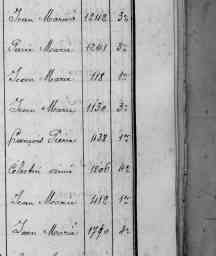 Jean Marie 1242 3e
Pierre Marie 1241 3e
Jean Marie 118 1e
Jean Marie 1130 3e
François Pierre 438 1e
Célestin 1806 4e
Jean Marie 412 1e
Jean Marie 1790 4e